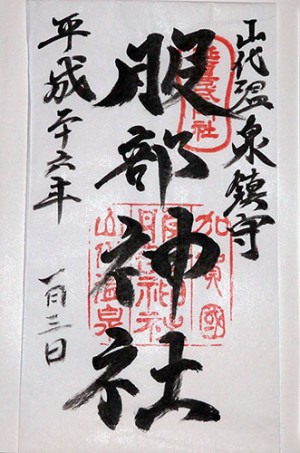 山代温泉鎮守
服部神社
平成二十六年
一月三日
加賀國
服部神社
山代温泉